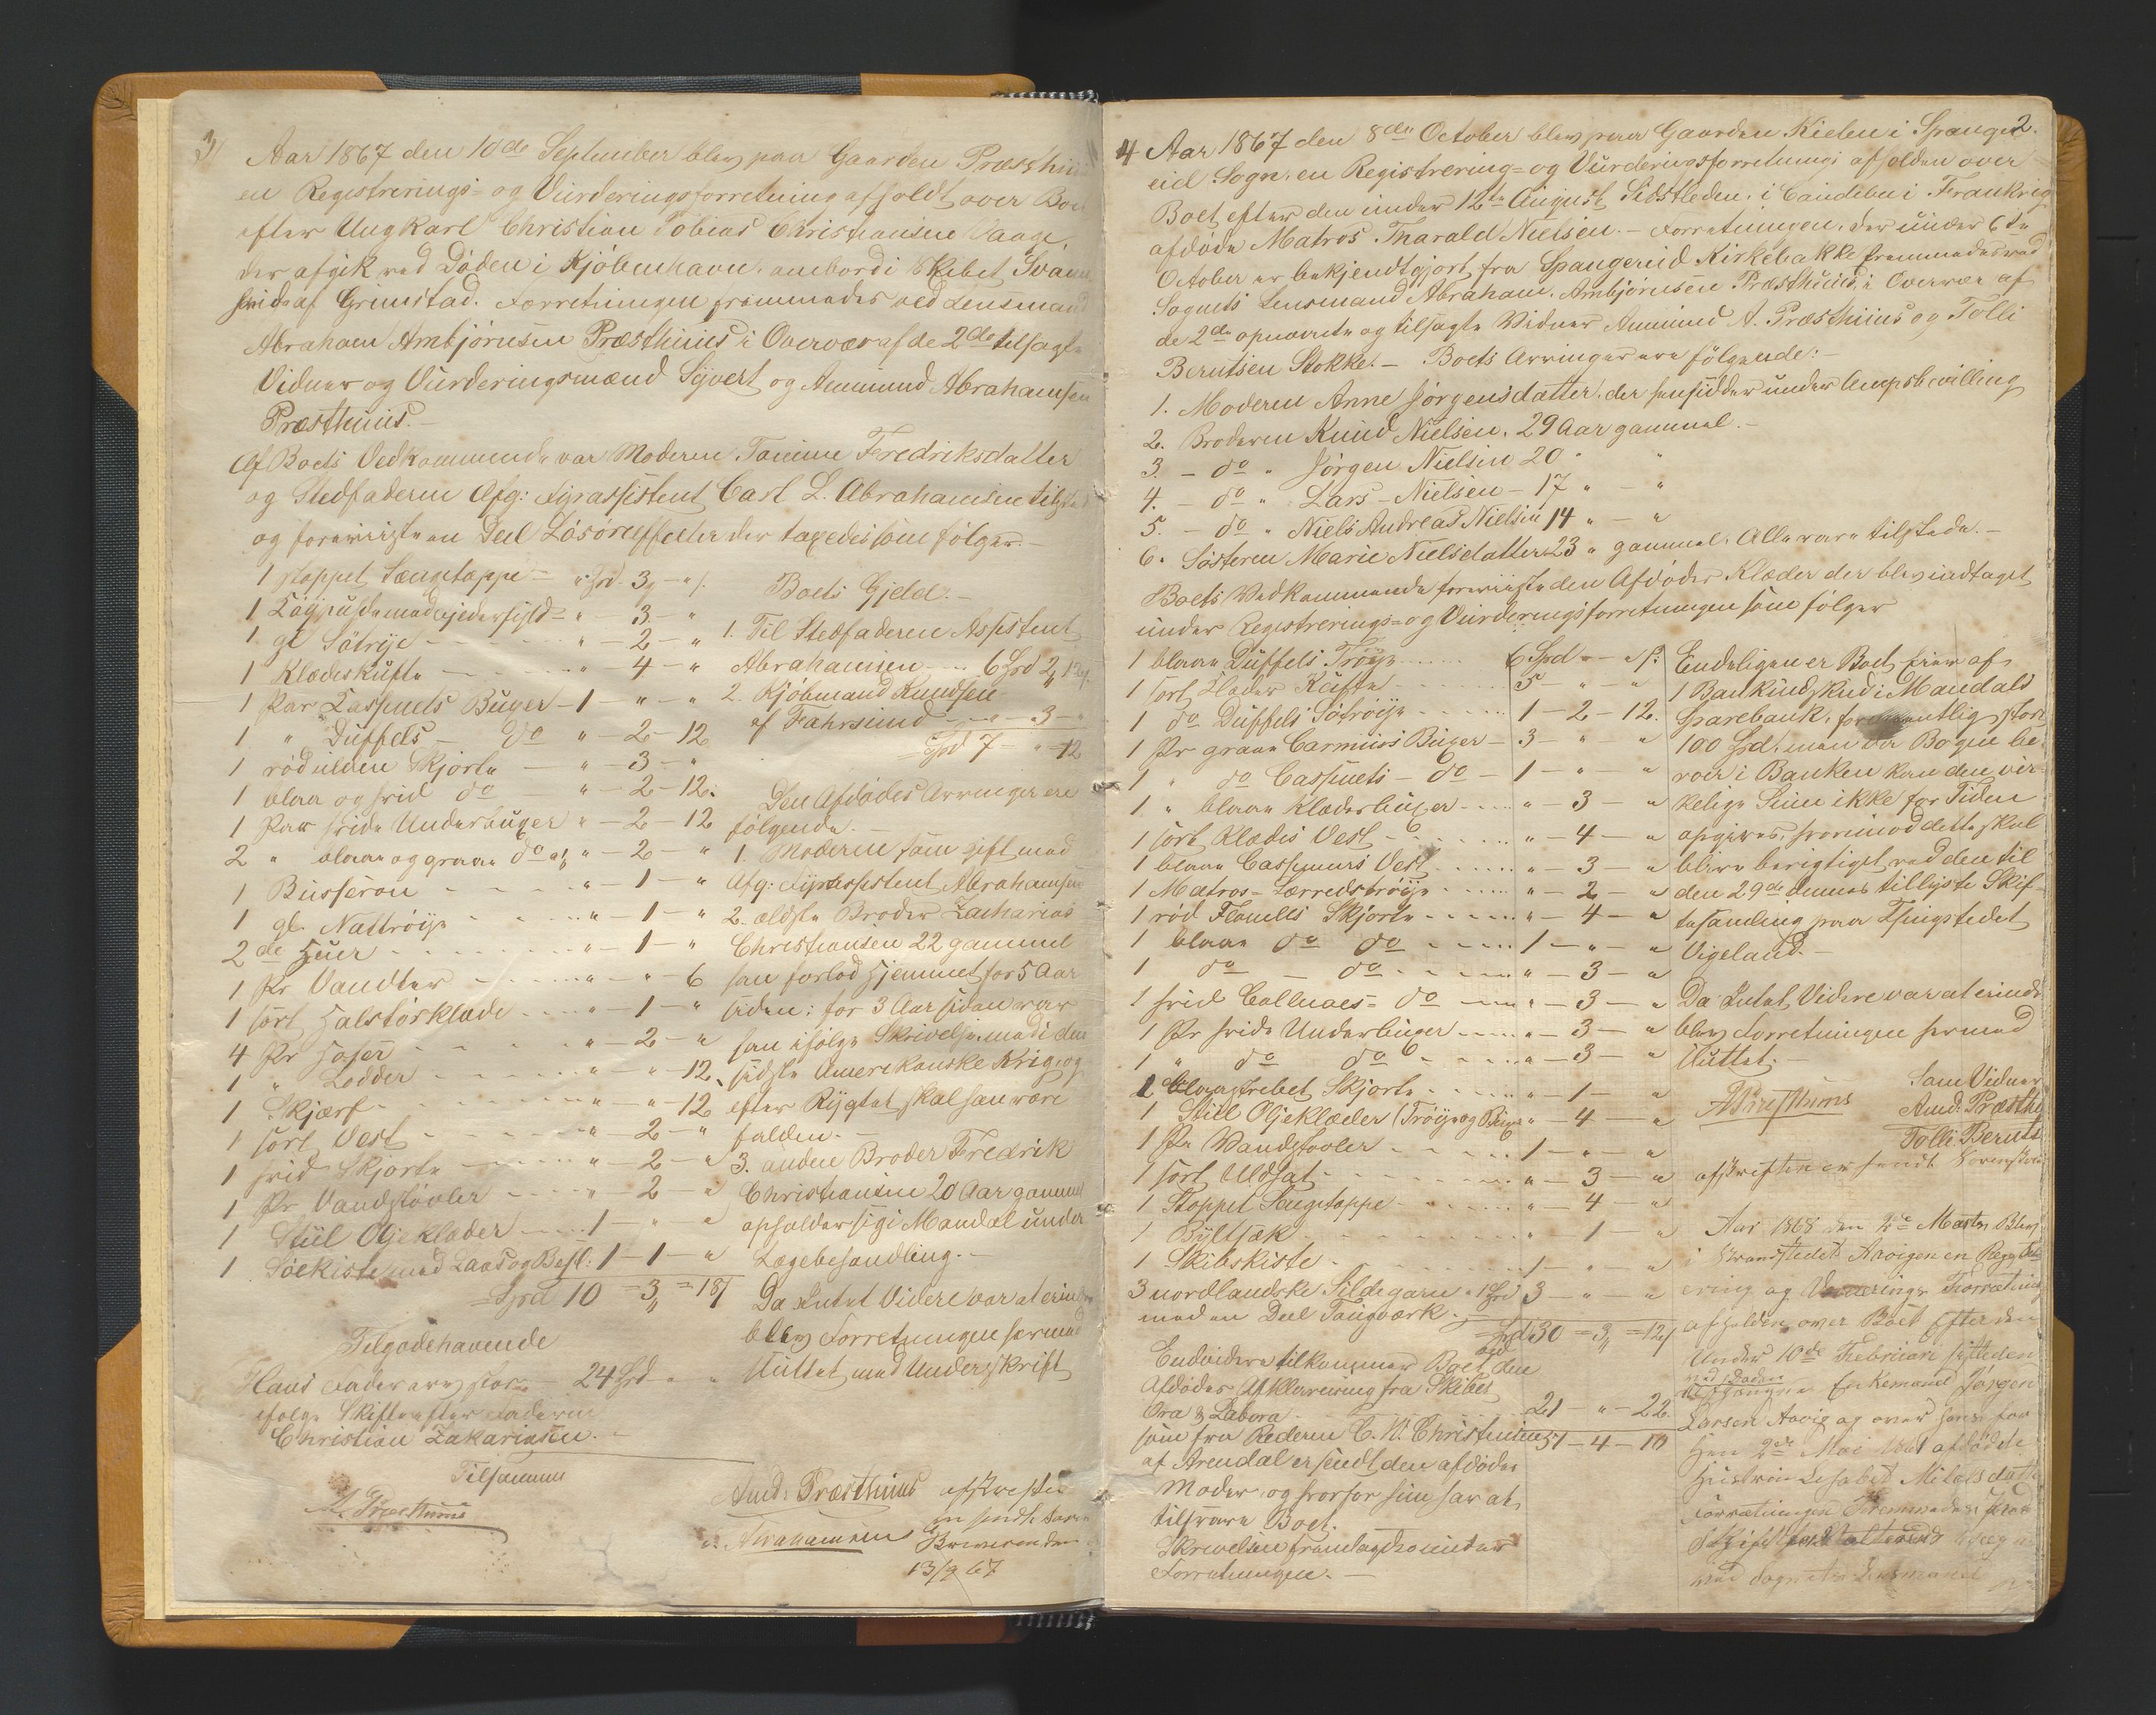 3
Aar 1867 den 10de September blev paa Gaarden Præsthuus
en Registrerings- og Vurderingsforretning afholdt over Boet
efter Ungkarl Christian Tobias Christiansen Vaage,
der afgik ved Döden i Kjöbenhavn ombord i Skibet Svane
af Grimstad. Forretningen fremmedes ved Lensmand
Abraham Ambjörnsen Præsthuus i Overvær af de 2de tilsagte
Vidner og Vurderingsmænd Syvert og Anmund Abrahamsen
Præsthuus.-
Af Boets Vedkommende var Moderen Tomine Fredriksdatter
og Stedfaderen Afg: Fyrassistent Carl L. Abrahamsen tilstede
og foreviiste en Deel Lösöreeffecter der toges som fölger.
1 stoppet Sængetæppe - " Spd. 3 - " s.
1 med - " - 3 - "
1 gl Söetröje - - " - 2 - "
1 Klædeskufte - - " - 4 - "
1 Par Cassinets Buxer - 1 - " - "
1 " Düffels - do " - 2 - 12
1 röd ulden Skjorte - " - 3 - "
1 blaa og hvid do - " - 2 - 12.
1 Par hvide Underbuxer " - 2 - 12
2 " blaae og graae do a 1 " - 2 - "
1 Busseron - - - " - 1 - "
1 gl. Nattröje - - " - 1 - "
2de Huer - - - " - 1 - "
1 Pr Vandter - - - " - " - 6
1 sort Halstörklæde - - " - 1 - "
4 Pr Hoser - - - " - 2 - "
1 " Lodder - - - " - " - 12
1 Skjærf - - - " - " - 12
1 sort Vest - - - " - 2 - "
1 hvid Skjorte - - " - 2 - "
1 Pr Vandstövler - - " - 2 - "
1 Stül Oljeklæder - - 1 - " - "
1 Söekiste med Laas og Besl: 1 - 1 - "
Spd 10 = 3 = 18 s
Tilgodehavende
Hans Faderarv stor - 24 Spd " "
ifölge Skifte efter Faderen
Christian Zakariasen. -
Tilsammen
A. Præsthuus
Boets Gjeld. -
1. Til Stedfaderen Assistent
Abrahamsen - - 6 Spd 2 12 s.
2. Kjöbmand Knudsen
af Fahrsund - - " - 3 - "
Spd 7 - " - 12
Den Afdödes Arvinger ere
fölgende. -
1. Moderen som gift med
Afg: Fyrassistent Abrahamsen
2. ældste Broder Zacharias
Christiansen 22 gammel
han forlod Hjemmet for 5 Aar
siden: for 3 Aar siden var
han ifölge Skrivelse med i den
sidste Amerikanske Krig, og
efter Rygtet skal han være
falden. -
3. anden Broder Fredrik
Christiansen 20 Aar gammel
opholder sig i Mandal under
Lægebehandling. -
Da Intet Videre var at erindre
blev Forretningen hermed
sluttet med Underskrift
Amd: Præsthuus
Abrahamsen
afskreften
er sendt
13/9 67
2.
4 Aar 1867 den 8de October blev paa Gaarden Kielen i Spanger-
eid Sogn, en Registrering- og Vurderingsforretning afholden over
Boet efter den under 12te August Sidstleden, i Caudebu i Frankrig
afdöde Matros Tharald Nielsen. - Forretningen, der under 6te
October er bekjendtgjort fra Spangereid Kirkebakke fremmedes ved
Sognets Lensmand Abraham. Ambjörnsen Præsthuus, i Overvær af
de 2de opnævnte og tilsagte Vidner Anmund A. Præsthuus og Tolli
Berntsen Stokke. - Boets Arvinger ere fölgende: -
1. Moderen Anne Jörgensdatter, der hensidder under Amtsbevilling
2. Broderen Knud Nielsen, 29 Aar gammel. -
3. - do " Jörgen Nielsen 20 " "
4. - do " Lars - Nielsen - 17 " - "
5. - do " Niels Andreas Nielsen 14 " - "
6. Sösteren Marie Nielsdatter 23 " gammel. Alle vare tilstede. -
Boets Vedkommende foreviiste den Afdödes Klæder der blev indtaget
under Registrerings- og Vurderingsforretningen som fölger
1 blaae Düffels Tröje - - 6 Spd " - " s:
1 sort Klædes Kufte - - 5 - " - "
1 do Düffels Sötröje - - 1 - 2 - 12.
1 Pr graae Buxer - 3 - " - "
1 " do Cassinets - do - 1 - " - "
1 " blaae Klædesbuxer - - " - 3 - "
1 sort Klædes Vest - - " - 4 - "
1 blaae Cassemirs Vest - - " - 3 - "
1 Matros-Lærredströje - - " - 2 - "
1 röd Flonells Skjorte - - " - 4 - "
1 blaae do do - - 1 - " - "
1 do - do - - " - 3 - "
1 hvid do - - " - 3 - "
1 Pr hvide Underbuxer - - " - 3 - "
1 " do do - - " - 3 - "
1 blaastribet Skjorte - - " - 1 - "
1 Stül Oljeklæder (Tröje og Buxe " - 4 - "
1 Pr Vandstövler - - 1 - " - "
1 sort Uldhat - - " - 3 - "
1 Stoppet Sengetæppe - - " - 4 - "
1 Byltsæk - - " - 1 - "
1 Skibskiste - - 1 - " - "
3 nordlandske Sildegarn a 1 Spd 3 - " - "
med en Deel Taugværk. -
Spd 30 = 3 = 12 s
Endvidere tilkommer Boet den
Afdödes Afklarering fra Skibet
Ora & Labora - - 21 - " - 22.
som fra Rederen C. W. Christensen 51 - 4 - 10
af Arendal er sendt den afdödes
Moder, og hvorfor hun har at
tilsvare Boet.
Skrivelsen fremlagdes under
Forretningen. -
Endeligen er Boet eier af
1 Bankindskud i Mandals
Sparebank, formentlig stor
100 Spd. men da Bogen be-
roer i Banken kan den vir-
kelige Sum ikke for Tiden
opgives, hvorimod dette skal
blive berigtiget ved den til
den 29de dennes tillyste Skif-
tesamling paa Thingstedet
Vigeland. -
Da Intet Videre var at erindre
blev Forretningen hermed
sluttet. -
APræsthuus
Som Vidner
Amd: Præsthu
Tolli Bernts
afskreften er sendt
Aar 1868 den Marts Blev
i Strandstedet Aavigen en Regist
ering og Vurderings Forretning
afholden over Boet Efter den
Under 10de Februar sistleden
ved Döden
Enkemand Jörgen
Larsen Aavig og over hans for
Hen 2de Mai afdöde
Hustrue Nilsdatter
Forretningen Fremmedes
ved Sognets Lensmand